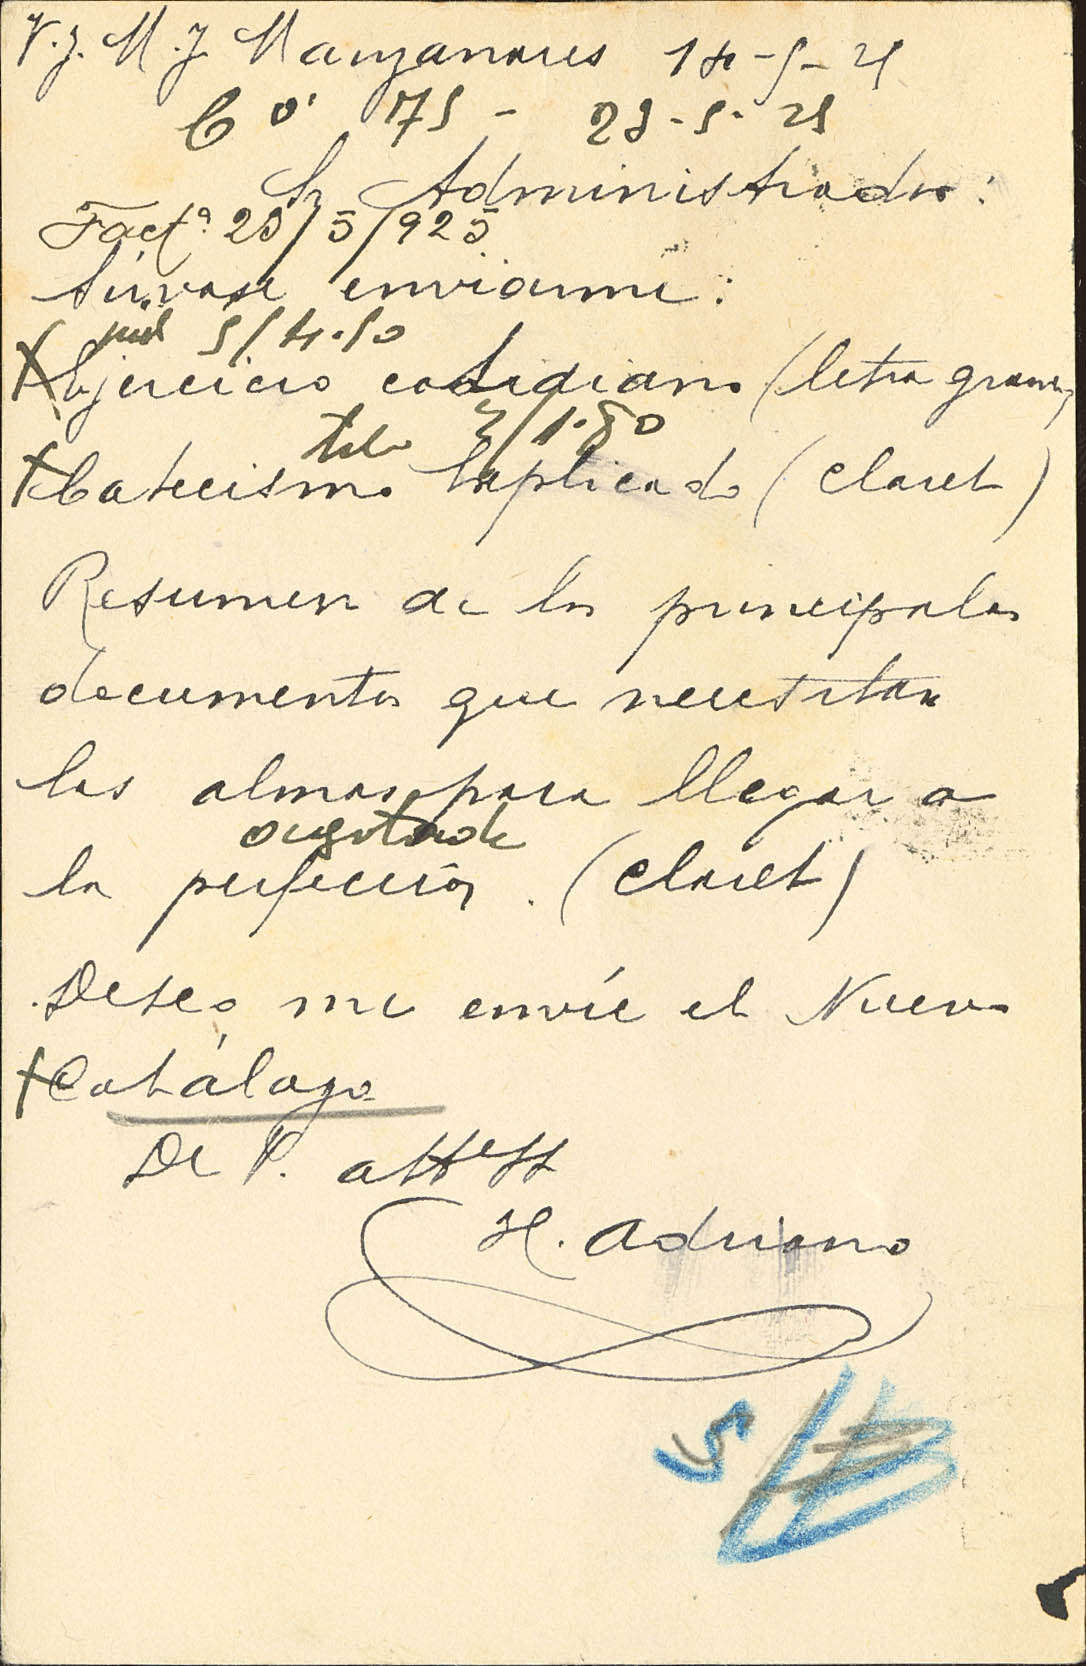 V. J. M. J. Manzanares 14-5-25
Co. 75 - 23-5-25
Sr Administrador:
Fact.ª 23/5/925
Sírvase enviarme:
piel 5/4.50
Ejercicio cotidiano (letra grande)
tela 3/1.80
Catecismo Explicado (Claret)
Resumen de los principales
documentos que necesitan
las almas para llegar a
agotado
la perfección. (Claret)
Deseo me envíe el Nuevo
Catálogo
De V. att
H. Adriano